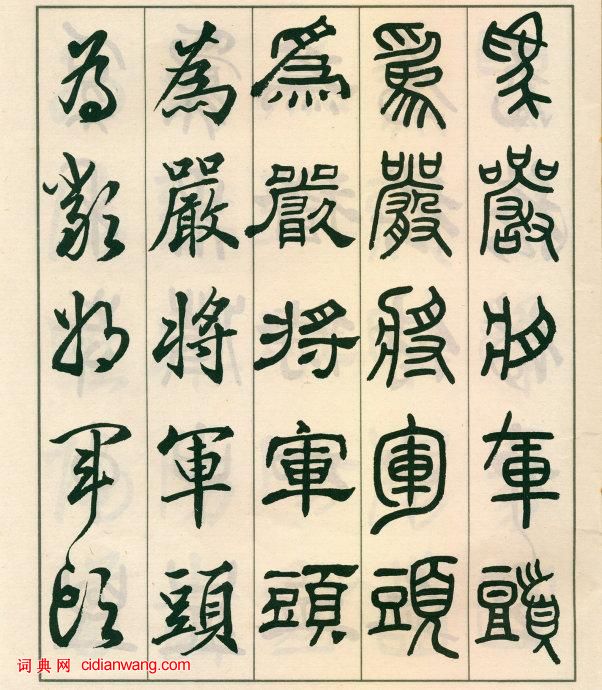 為嚴將軍頭
為嚴將軍頭
為嚴將軍頭
為嚴將軍頭
為嚴將軍頭
词典网 cidianwang.com